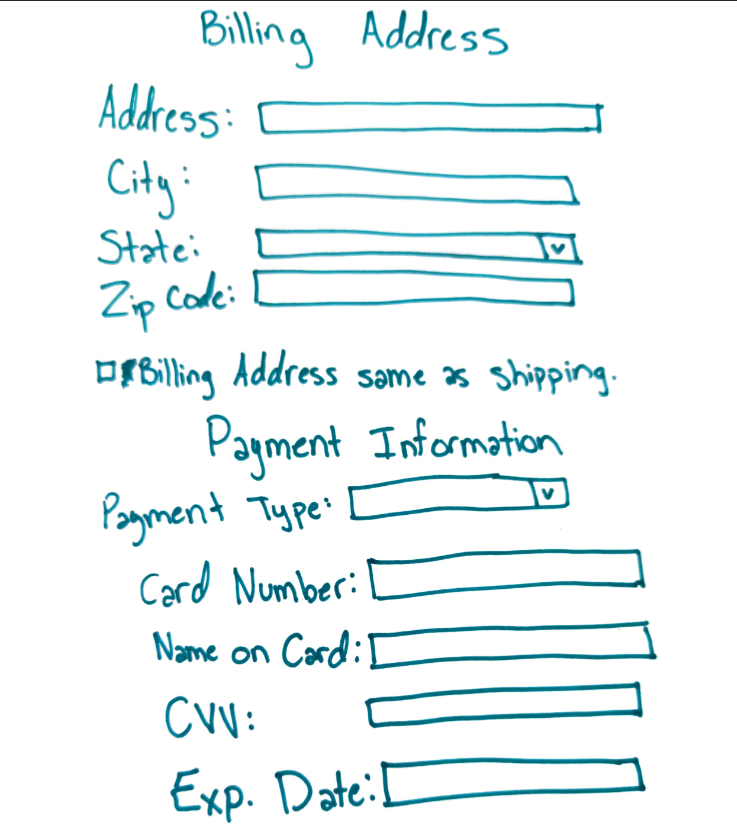 Billing Address
Address:
City:
State:
Zip Code:
Billing Address same as shipping.
Payment Information
Payment Type:
Card Number:
Name on Card:
CVV:
Exp. Date: